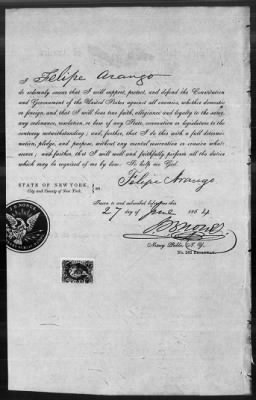 I Felipe Arango
do solemnly swear that I will support, protect, and defend the Constitution
and Government of the United States against all enemies, whether domestic
or foreign, and that I will bear true faith, allegiance and loyalty to the same,
any ordinance, resolution or law of any State, convention or legislature to the
contrary notwithstanding; and, further, that I do this with a full determi-
nation, pledge, and purpose, without any mental reservation or evasion what-
soever; and further, that I will well and faithfully perform all the duties
which may be required of me by law. So help me God.
Felipe Arango
STATE OF NEW YORK,
City and County of New York.
} ss.
Sworn to and subscribed before me this
27 day of June 1864
Notary Public, N. Y.
No. 261 BROADWAY.